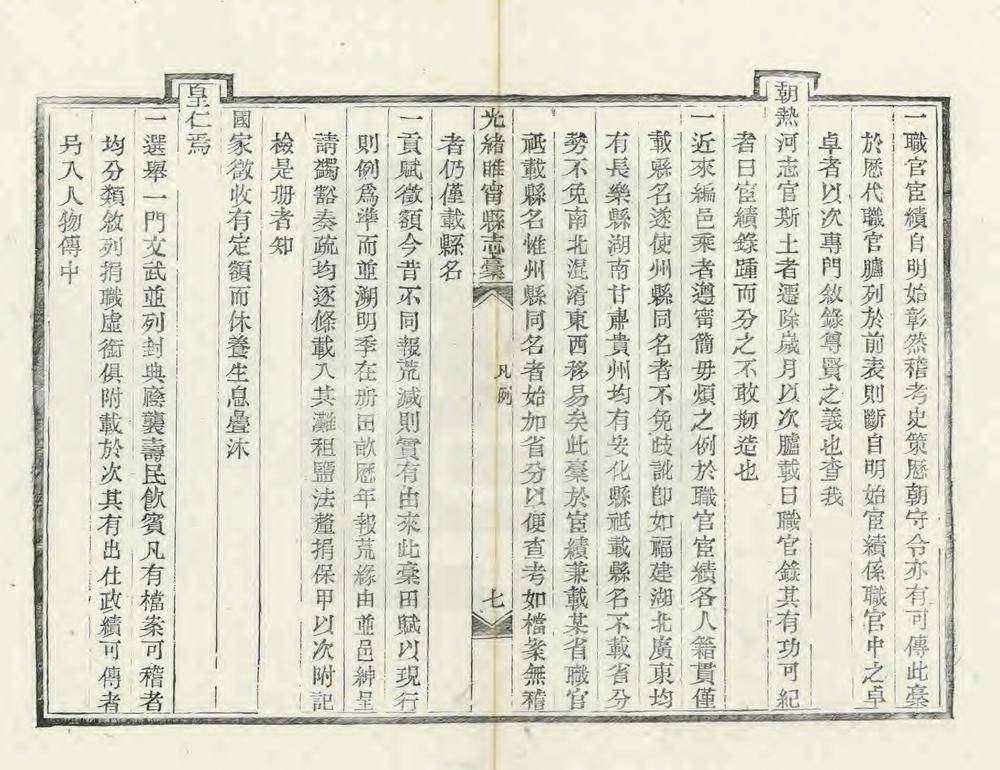 一職官宦績自明始彰然稽考史策歷朝守令亦有可傳此稾
於歷代職官臚列於前表則斷自明始宦績係職官中之卓
卓者以次專門敘錄尊賢之義也查我
朝熱河志官斯土者遷除歲月以次臚載曰職官錄其有功可紀
者曰宦績錄踵而分之不敢剙造也
一近來編邑乘者遵甯簡毋煩之例於職官宦績各人籍貫僅
載縣名遂使州縣同名者不免歧訛卽如福建湖北廣東均
有長樂縣湖南甘肅貴州均有安化縣祗載縣名不載省分
勢不免南北混淆東西移易矣此稾於宦績兼載某省職官
祗載縣名惟州縣同名者始加省分以便查考如檔案無稽
光緒睢甯縣志稾
凡例
七
者仍僅載縣名
一貢賦徵額今昔不同報荒減則實有由來此稾田賦以現行
則例爲準而並溯明季在册田畝歷年報荒緣由並邑紳呈
請蠲豁奏疏均逐條載入其灘租鹽法釐捐保甲以次附記
檢是册者知
國家徵收有定額而休養生息疊沐
皇仁焉
一選舉一門文武並列封典廕襲壽民飮賓凡有檔案可稽者
均分類敘列捐職虛銜俱附載於次其有出仕政績可傳者
另入人物傳中